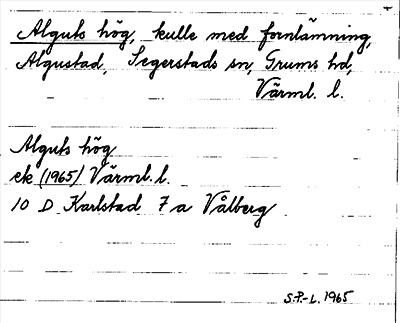 Alguts hög, kulle med fornlämning,
Algustad, Segerstads sn, Grums hd,
Värml. l.
Alguts hög
ek (1965) Värml. l.
10 D Karlstad 7 a Vålberg
S.P.-L. 1965